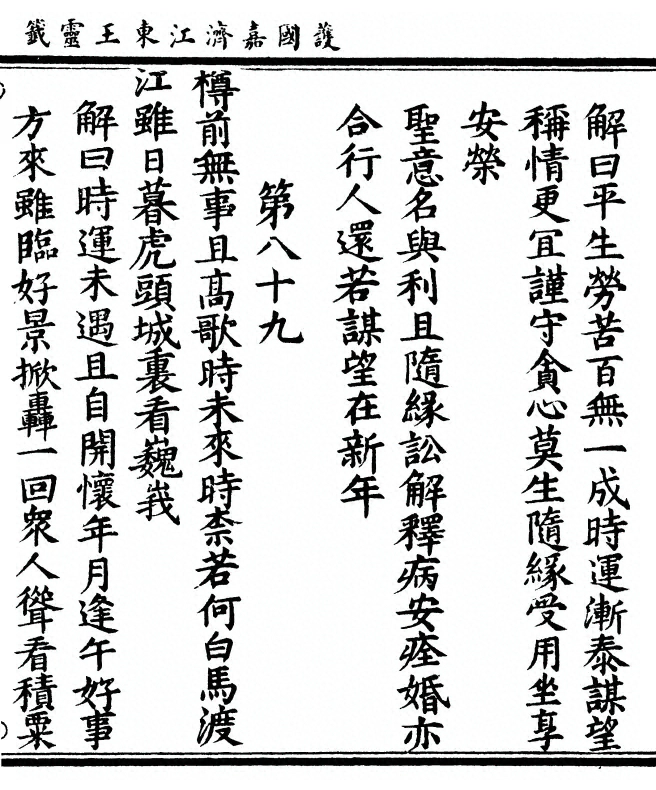 護國嘉濟江東王靈籤
解曰平生勞苦百無一成時運漸泰謀望
稱情更宜謹守貪心莫生隨緣受用坐享
安榮
聖意名與利且隨緣訟解釋病安痊婚亦
合行人還若謀望在新年
第八十九
樽前無事且高歌時未來時柰若何白馬渡
江雖日暮虎頭城裏看巍峩
解曰時運未遇且自開懷年月逢午好事
方來雖臨好景掀轟一回眾人聳看積粟